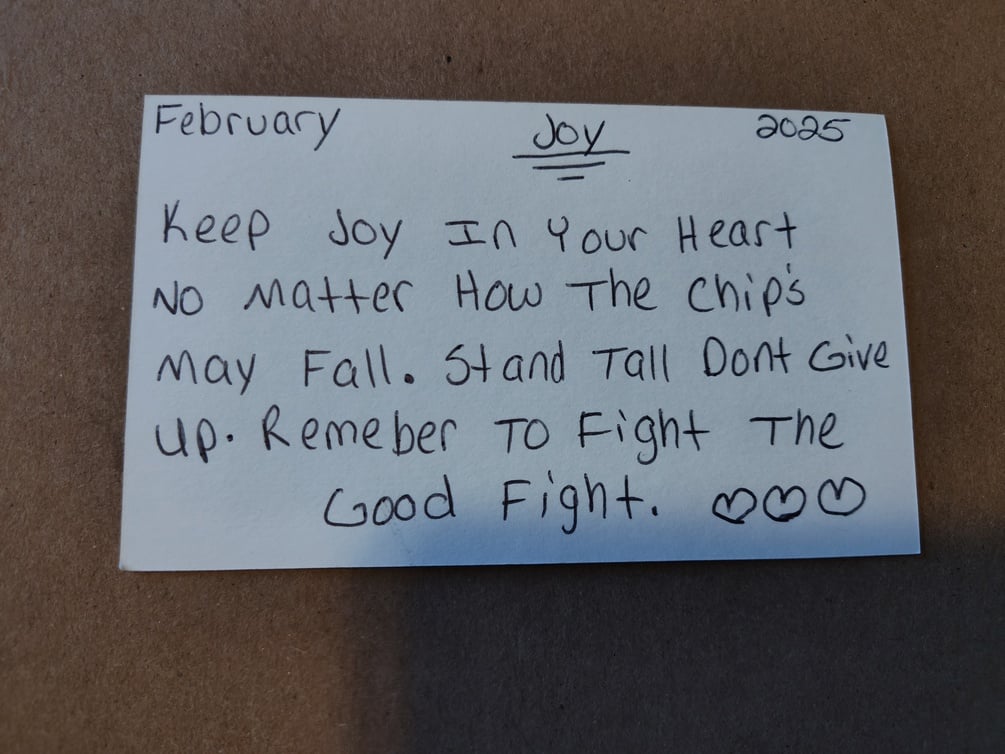 February Joy 2025
Keep Joy In Your Heart
No Matter How The Chip's
May Fall. Stand Tall Dont Give
Up. Remeber To Fight The
Good Fight. ♡♡♡